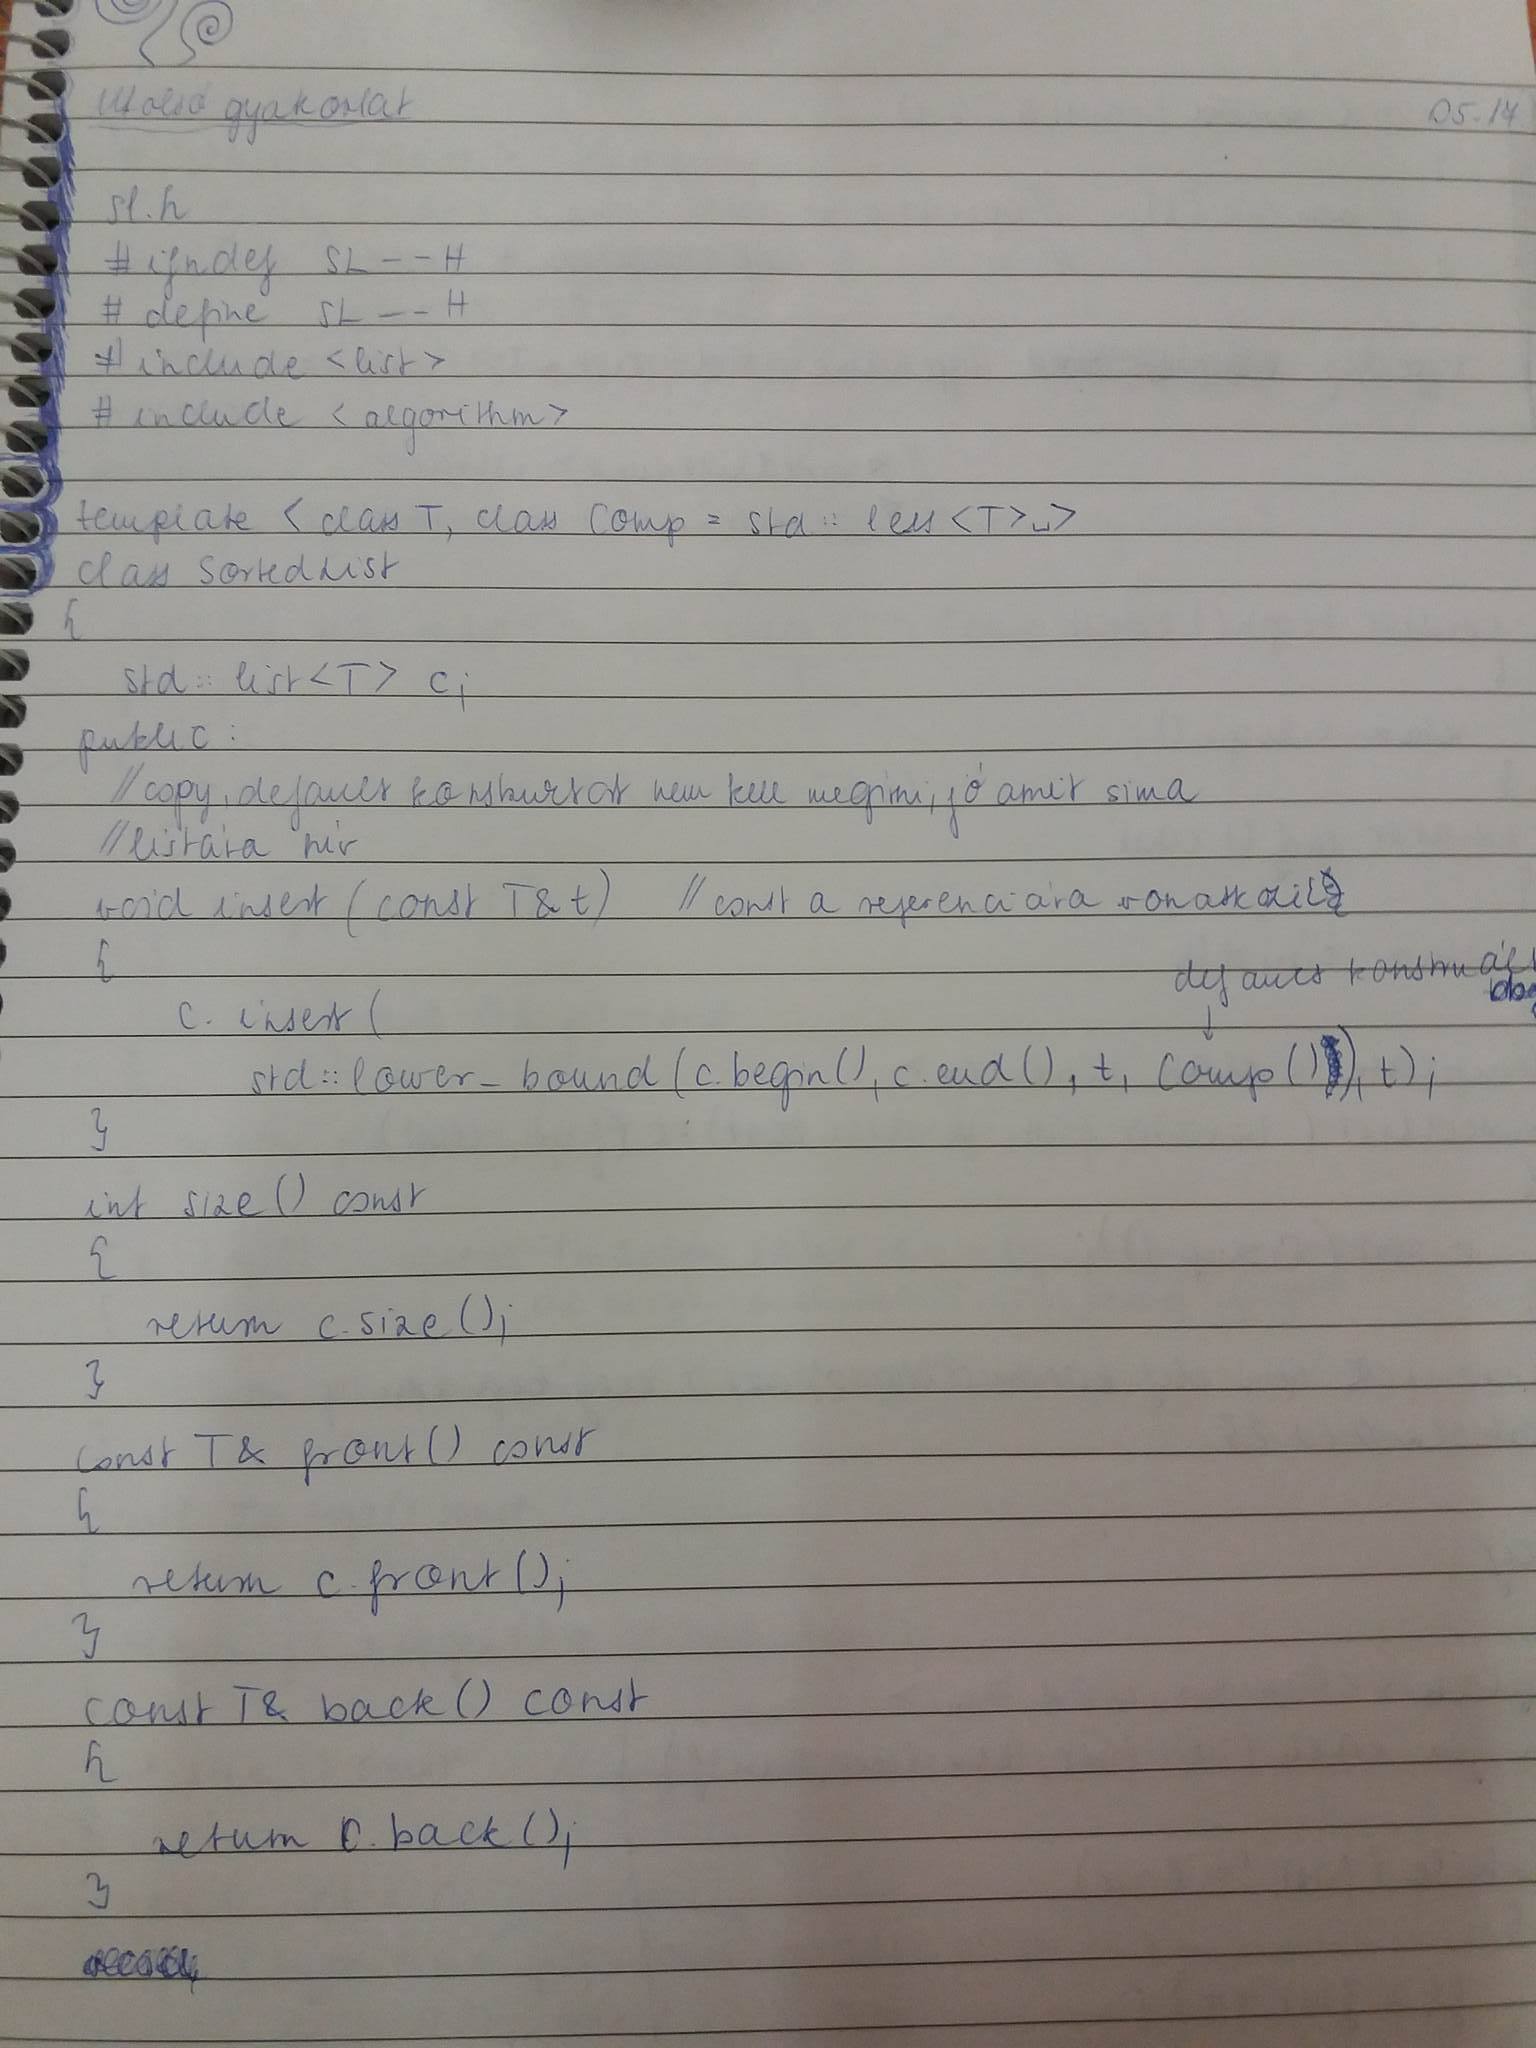 Utolsó gyakorlat 05.17
sl.h
#ifndef SL__H
#define SL__H
#include <list>
#include <algorithm>
template <class T, class Comp = std::less<T>␣>
class SortedList
{
std::list<T> c;
public:
//copy, default nem kell megírni, jó amit sima
//listára hív
void insert (const T& t) //const a referenciára vonatkozik
{
default
c. insert (
std::lower_bound (c.begin(), c.end(), t, Comp()), t);
}
int size() const
{
return c.size();
}
const T& front() const
{
return c.front();
}
const T& back() const
{
return c.back();
}